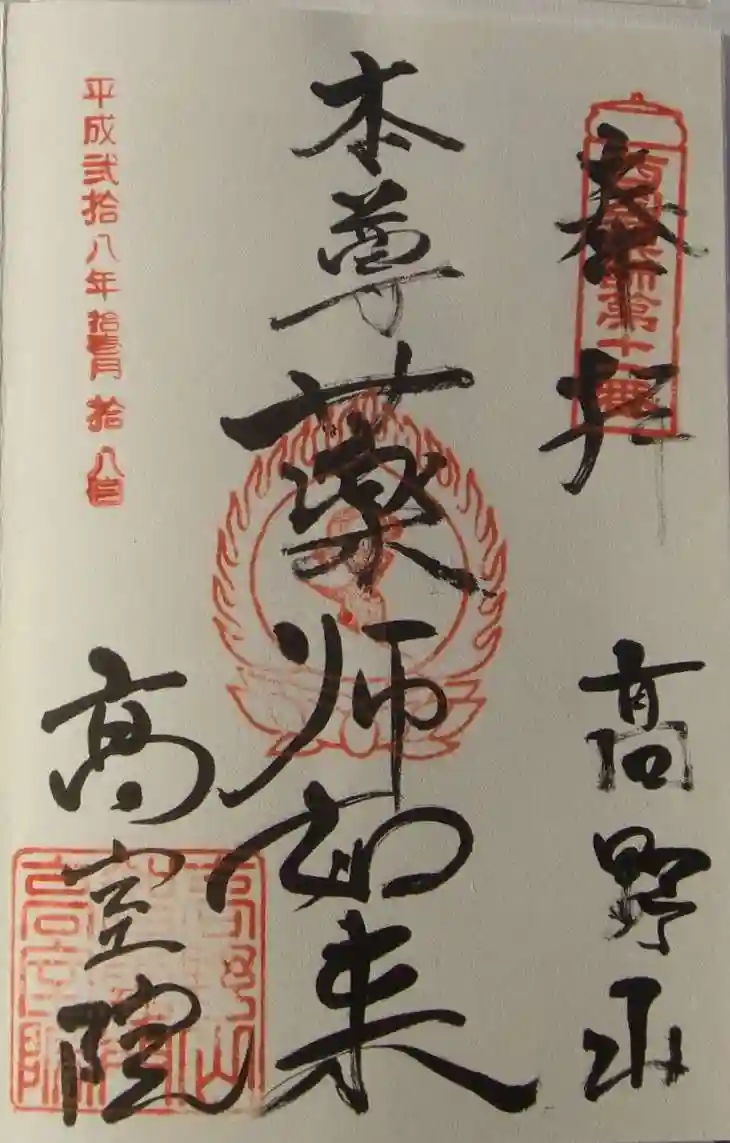 奉拝
高野山
西国薬師第十一番
本尊薬師如来
平成弐拾八年拾壱月拾八日
高室院